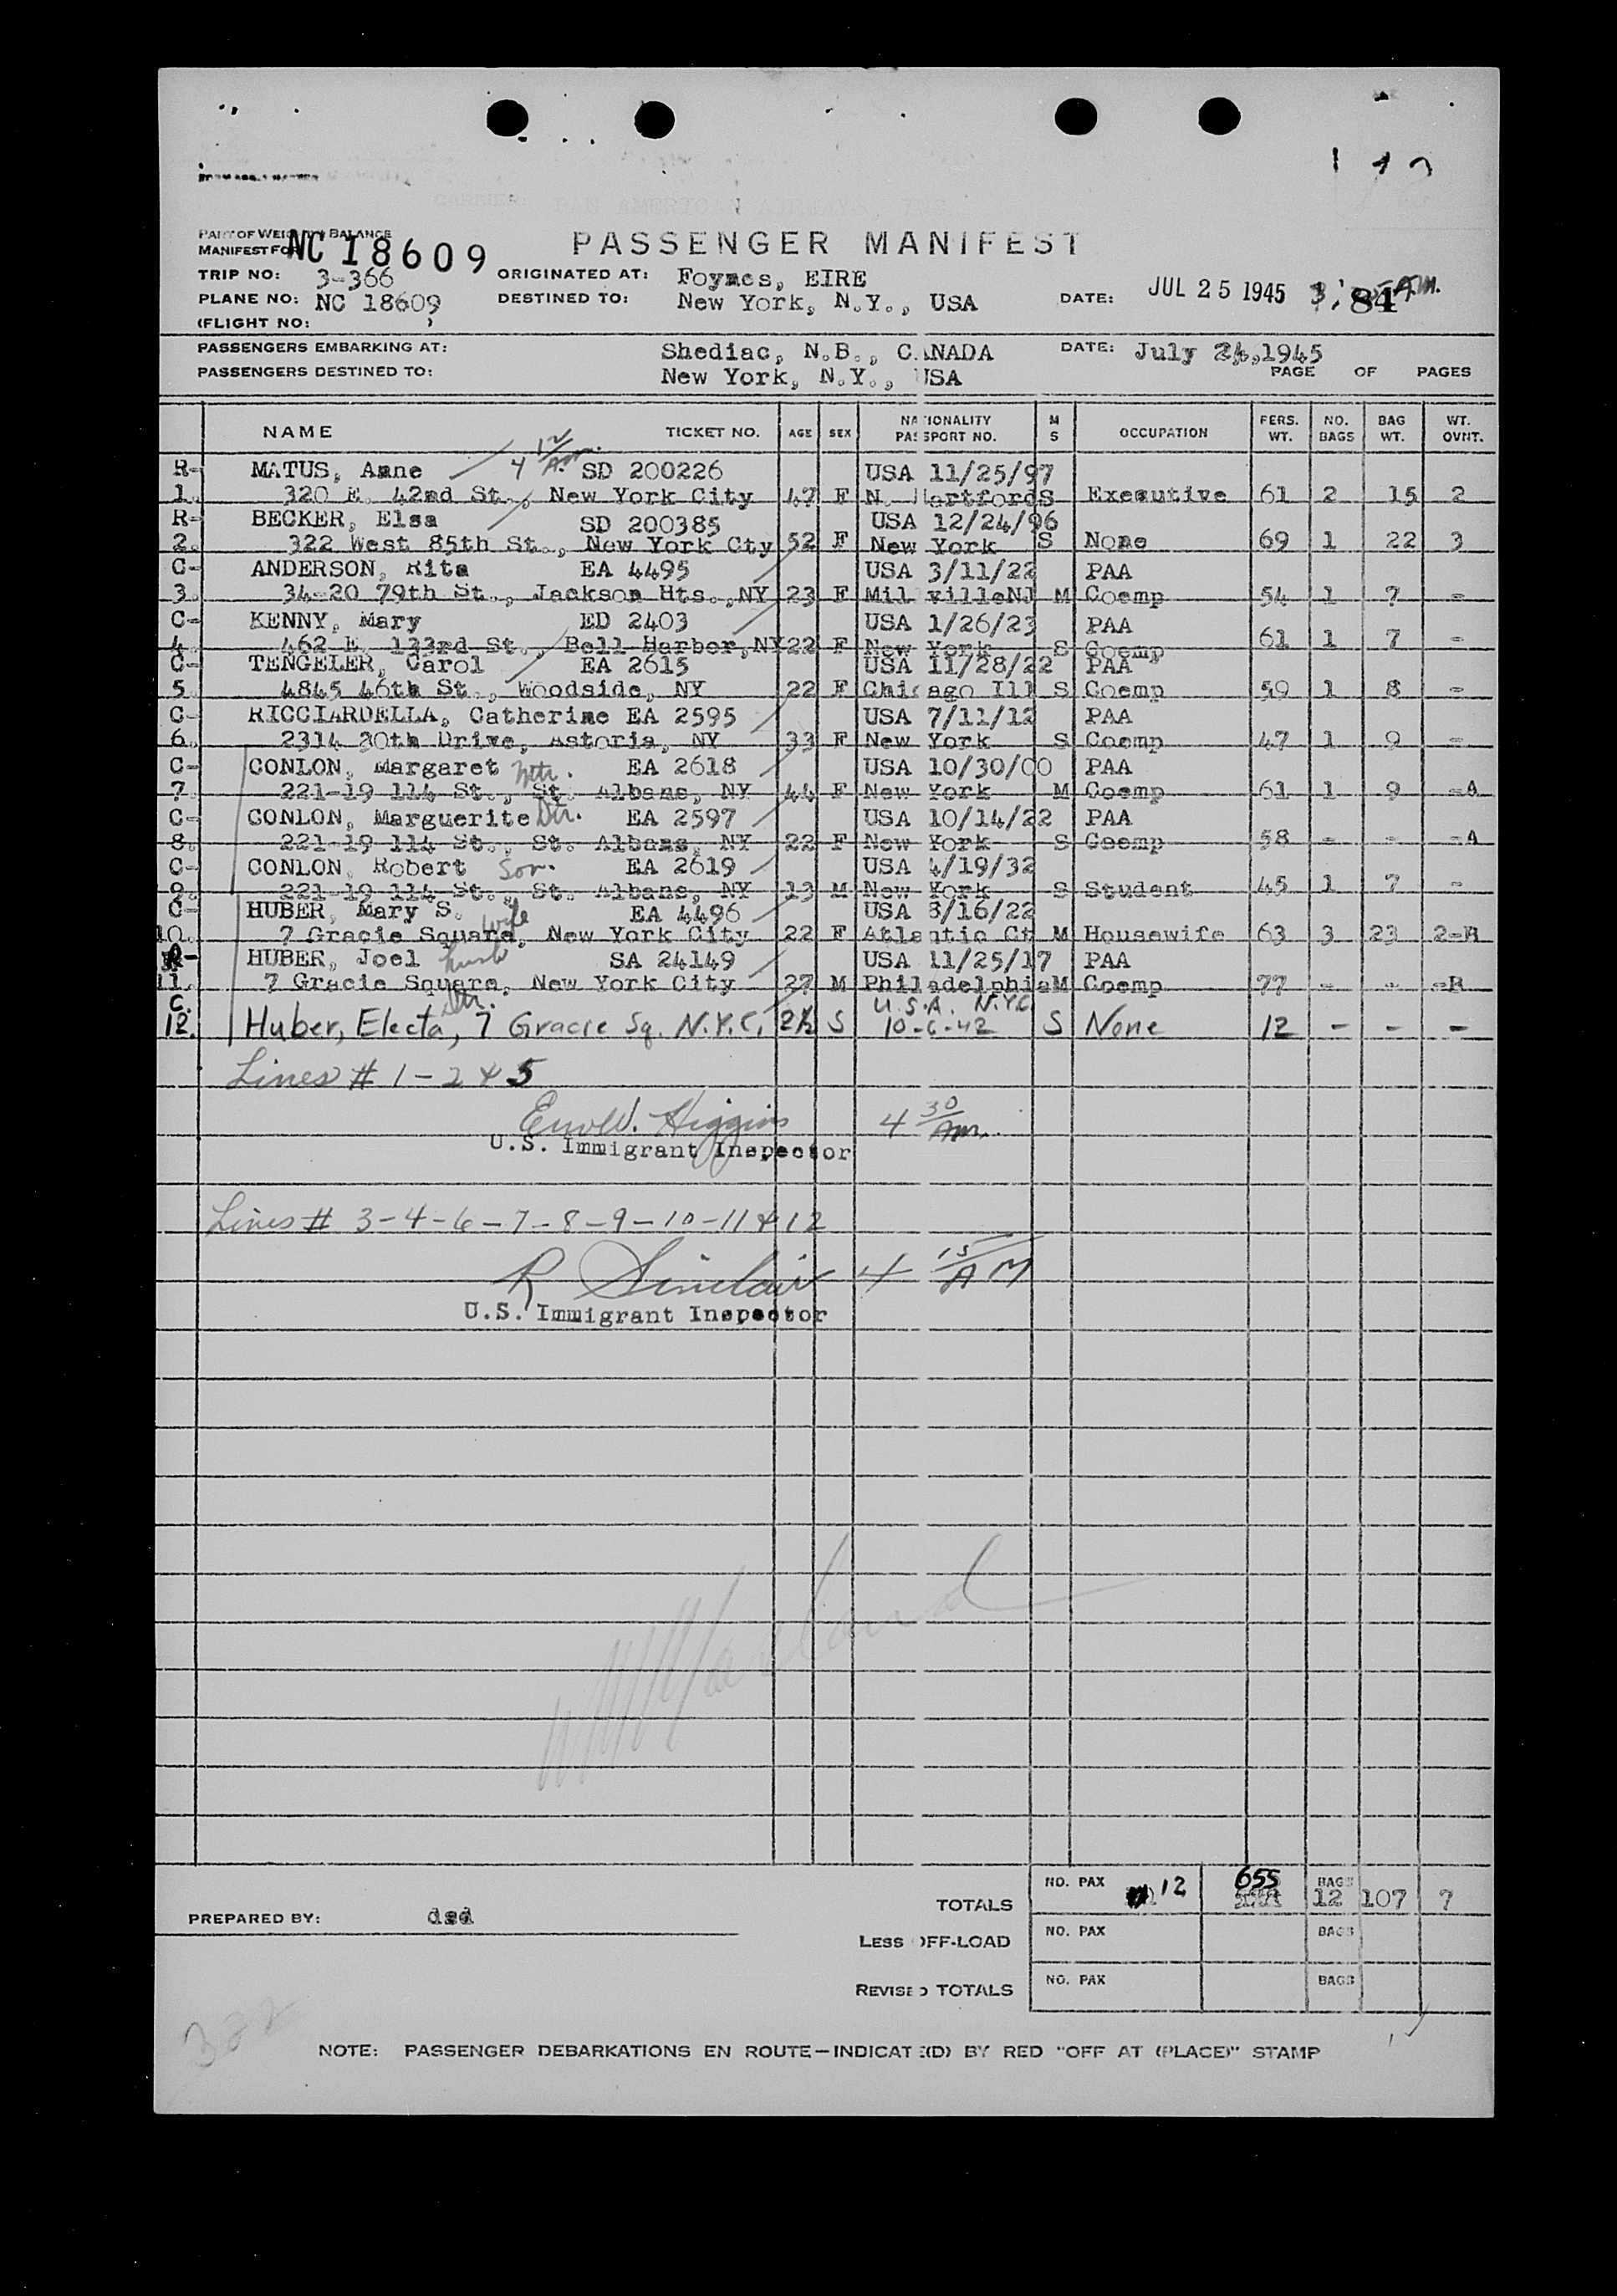 PART OF WEIGHT & BALANCE
MANIFEST FOR NC 18609
PASSENGER MANIFEST
TRIP NO: 3-366 ORIGINATED AT: Foynes, EIRE
PLANE NO: NC 18609 DESTINED TO: New York, N.Y., USA DATE: JUL 25 1945 84
(FLIGHT NO: )
PASSENGERS EMBARKING AT: Shediac, N.B., CANADA DATE: July 24,1945
PASSENGERS DESTINED TO: New York, N.Y., USA PAGE OF PAGES
NAME TICKET NO. AGE SEX NATIONALITY PASSPORT NO. M S OCCUPATION PERS. WT. NO. BAGS BAG WT. WT. OVNT.
R- MATUS, Anne 4 12 AM. SD 200226 USA 11/25/97
1. 320 E. 42nd St., New York City 47 F N. Hartford S Executive 61 2 15 2
R- BECKER, Elsa SD 200385 USA 12/24/96
2. 322 West 85th St., New York Cty 52 F New York S None 69 1 22 3
C- ANDERSON, Rita EA 4495 USA 3/11/22 PAA
3. 34-20 79th St., Jackson Hts.,NY 23 F MillvilleNJ M Coemp 54 1 7 -
C- KENNY, Mary ED 2403 USA 1/26/23 PAA
4. 462 E. 133rd St., Bell Harbor,NY 22 F New York S Coemp 61 1 7 -
C- TENGELER, Carol EA 2615 USA 11/28/22 PAA
5. 4845 46th St., Woodside, NY 22 F Chicago Ill S Coemp 59 1 8 -
C- RICCIARDELLA, Catherine EA 2595 USA 7/11/12 PAA
6. 2314 30th Drive, Astoria, NY 33 F New York S Coemp 47 1 9 -
C- CONLON, Margaret Mtr. EA 2618 USA 10/30/00 PAA
7. 221-19 114 St., St. Albans, NY 44 F New York M Coemp 61 1 9 -A
C- CONLON, Marguerite Dtr. EA 2597 USA 10/14/22 PAA
8. 221-19 114 St., St. Albans, NY 22 F New York S Coemp 58 - - -A
C- CONLON, Robert Son. EA 2619 USA 4/19/32
9. 221-19 114 St., St. Albans, NY 13 M New York S Student 45 1 7 -
C- HUBER, Mary S. wife EA 4496 USA 8/16/22
10. 7 Gracie Square, New York City 22 F Atlantic Ct M Housewife 63 3 23 2-B
R- HUBER, Joel husb SA 24149 USA 11/25/17 PAA
11. 7 Gracie Square, New York City 27 M Philadelphia M Coemp 77 - - -B
C. Dtr. U.S.A. N.Y.C.
12. Huber, Electa, 7 Gracie Sq. N.Y.C. 2½ S 10-6-42 S None 12 - - -
Lines # 1-2 & 5
Higgins 4 30 AM.
U.S. Immigrant Inspector
Lines # 3-4-6-7-8-9-10-11 & 12
R Sinclair 4 15 AM
U.S. Immigrant Inspector
TOTALS NO. PAX 12 655 BAGS 12 107 7
PREPARED BY: dsd
LESS OFF-LOAD NO. PAX BAGS
REVISED TOTALS NO. PAX BAGS
322
NOTE: PASSENGER DEBARKATIONS EN ROUTE—INDICATE(D) BY RED "OFF AT (PLACE)" STAMP